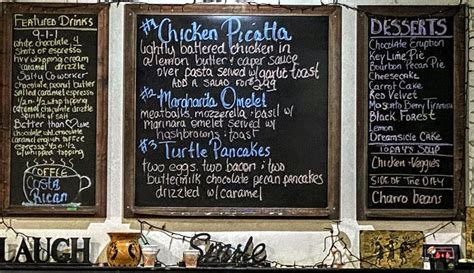 Featured Drinks
9-1-1
white chocolate, 4
shots of espresso
hvy whipping cream
caramel drizzle
Salty Co-worker
Chocolate, peanut butter
salted caramel, espresso
½-n-½ whip caramel
chocolate drizzle
sprinkle of salt
Better than
dark chocolate, white chocolate
caramel english toffee
espresso ½-n-½
w/whipped topping
COFFEE
Costa
Rican
#1 Chicken Picatta
lightly battered chicken in
a lemon butter & caper sauce
over pasta served w/garlic toast
ADD A SALAD FOR 2.99
#2 Margharita Omelet
meatballs, mozzerella, basil w/
marinara omelet served w/
hashbrowns & toast
#3 Turtle Pancakes
two eggs, two bacon & two
buttermilk chocolate pecan pancakes
drizzled w/caramel
DESSERTS
Chocolate Eruption
Key Lime Pie
Bourbon Pecan Pie
Cheesecake
Carrot Cake
Red Velvet
Mosasto Berry Tiramisu
Black Forest
Lemon
Dreamsicle Cake
TODAY'S SOUP
Chicken-Veggies
SIDE OF THE DAY
Charro beans
LAUGH
Smile